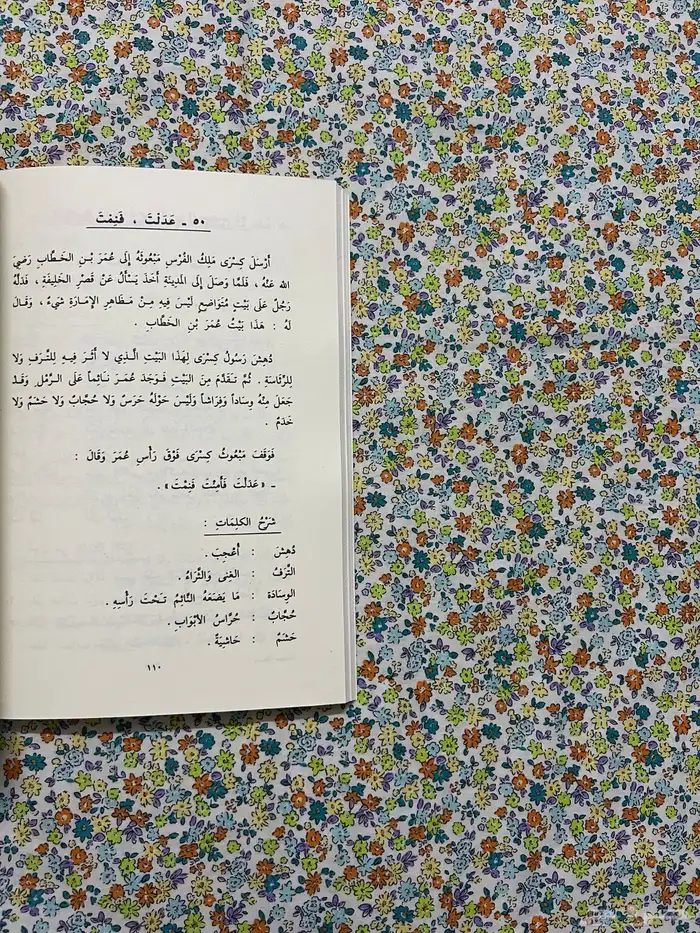 ٥٠ - عَدَلْتَ ، فَنِمْتَ
أَرْسَلَ كِسْرَى مَلِكُ الفُرْسِ مَبْعُوثَهُ إِلَى عُمَرَ بْنِ الخَطَّابِ رَضِيَ
الله عَنْهُ ، فَلَمَّا وَصَلَ إِلَى المَدِينَةِ أَخَذَ يَسْأَلُ عَنْ قَصْرِ الخَلِيفَةِ ، فَدَلَّهُ
رَجُلٌ عَلَى بَيْتٍ مُتَوَاضِعٍ لَيْسَ فِيهِ مِنْ مَظَاهِرِ الإِمَارَةِ شَيْءٌ ، وَقَالَ
لَهُ : هَذَا بَيْتُ عُمَرَ بْنِ الخَطَّابِ .
دُهِشَ رَسُولُ كِسْرَى لِهَذَا البَيْتِ الَّذِي لَا أَثَرَ فِيهِ لِلتَّرَفِ وَلَا
لِلرِّئَاسَةِ . ثُمَّ تَقَدَّمَ مِنَ البَيْتِ فَوَجَدَ عُمَرَ نَائِماً عَلَى الرَّمْلِ وَقَدْ
جَعَلَ مِنْهُ وِسَاداً وَفِرَاشاً وَلَيْسَ حَوْلَهُ حَرَسٌ وَلَا حُجَّابٌ وَلَا حَشَمٌ وَلَا
خَدَمٌ .
فَوَقَفَ مَبْعُوثُ كِسْرَى فَوْقَ رَأْسِ عُمَرَ وَقَالَ :
- «عَدَلْتَ فَأَمِنْتَ فَنِمْتَ» .
شَرْحُ الكَلِمَاتِ :
دُهِشَ : أُعْجِبَ .
التَّرَفُ : الغِنَى وَالثَّرَاءُ .
الوِسَادَة : مَا يَضَعَهُ النَّائِمُ تَحْتَ رَأْسِهِ .
حُجَّابٌ : حُرَّاسُ الأَبْوَابِ .
حَشَمٌ : حَاشِيَةٌ .
١١٠